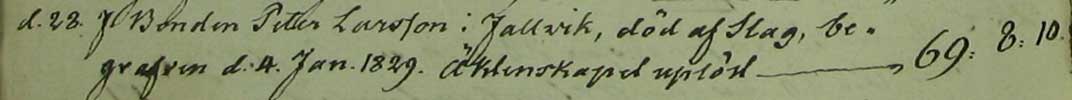 d. 28. J Bonden Peter Larsson i Jallvik, död af Slag, be-
grafven d. 4. Jan. 1829. Äktenskapet uplöst — 69: 8: 10.